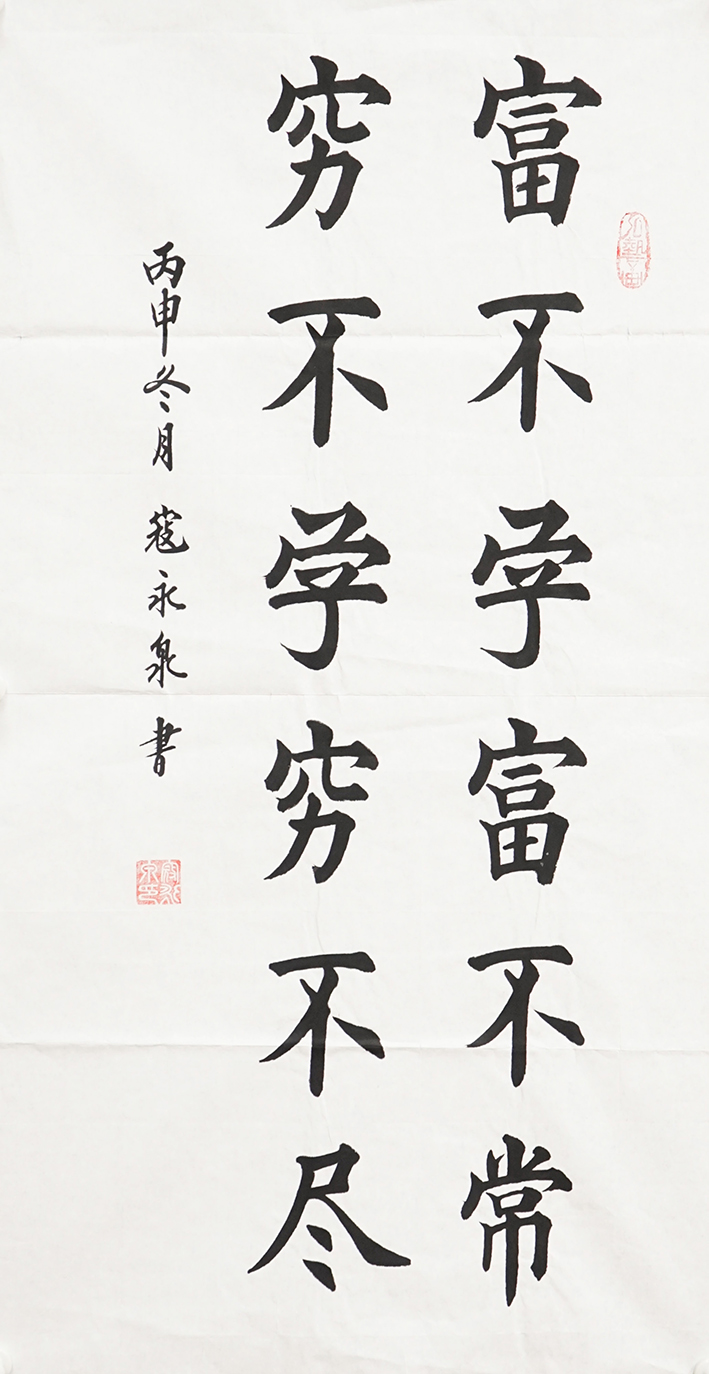 富不学富不常
穷不学穷不尽
丙申冬月 寇永泉 書